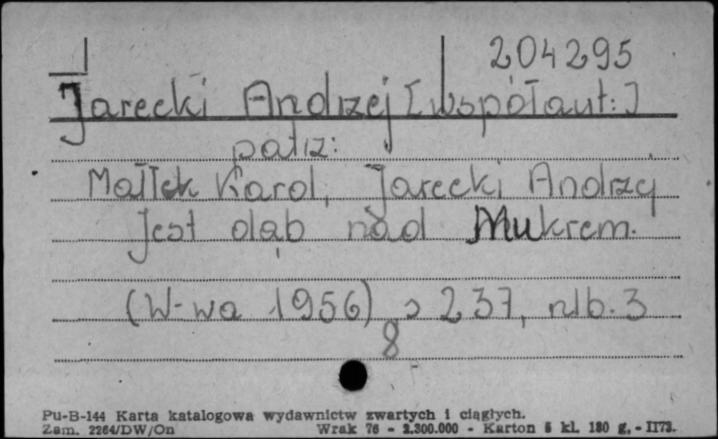 204295
Jarecki Andrzej [współaut:]
patrz:
Małłek Karol, Jarecki Andrzej
Jest dąb nad Mukrem.
(W-wa 1956) s 237, nlb. 3
8
Pu-B-144 Karta katalogowa wydawnictw zwartych i ciągłych.
Zam. 2264/DW/On Wrak 76 - 2.300.000 - Karton 5 kl. 180 g. - II73.